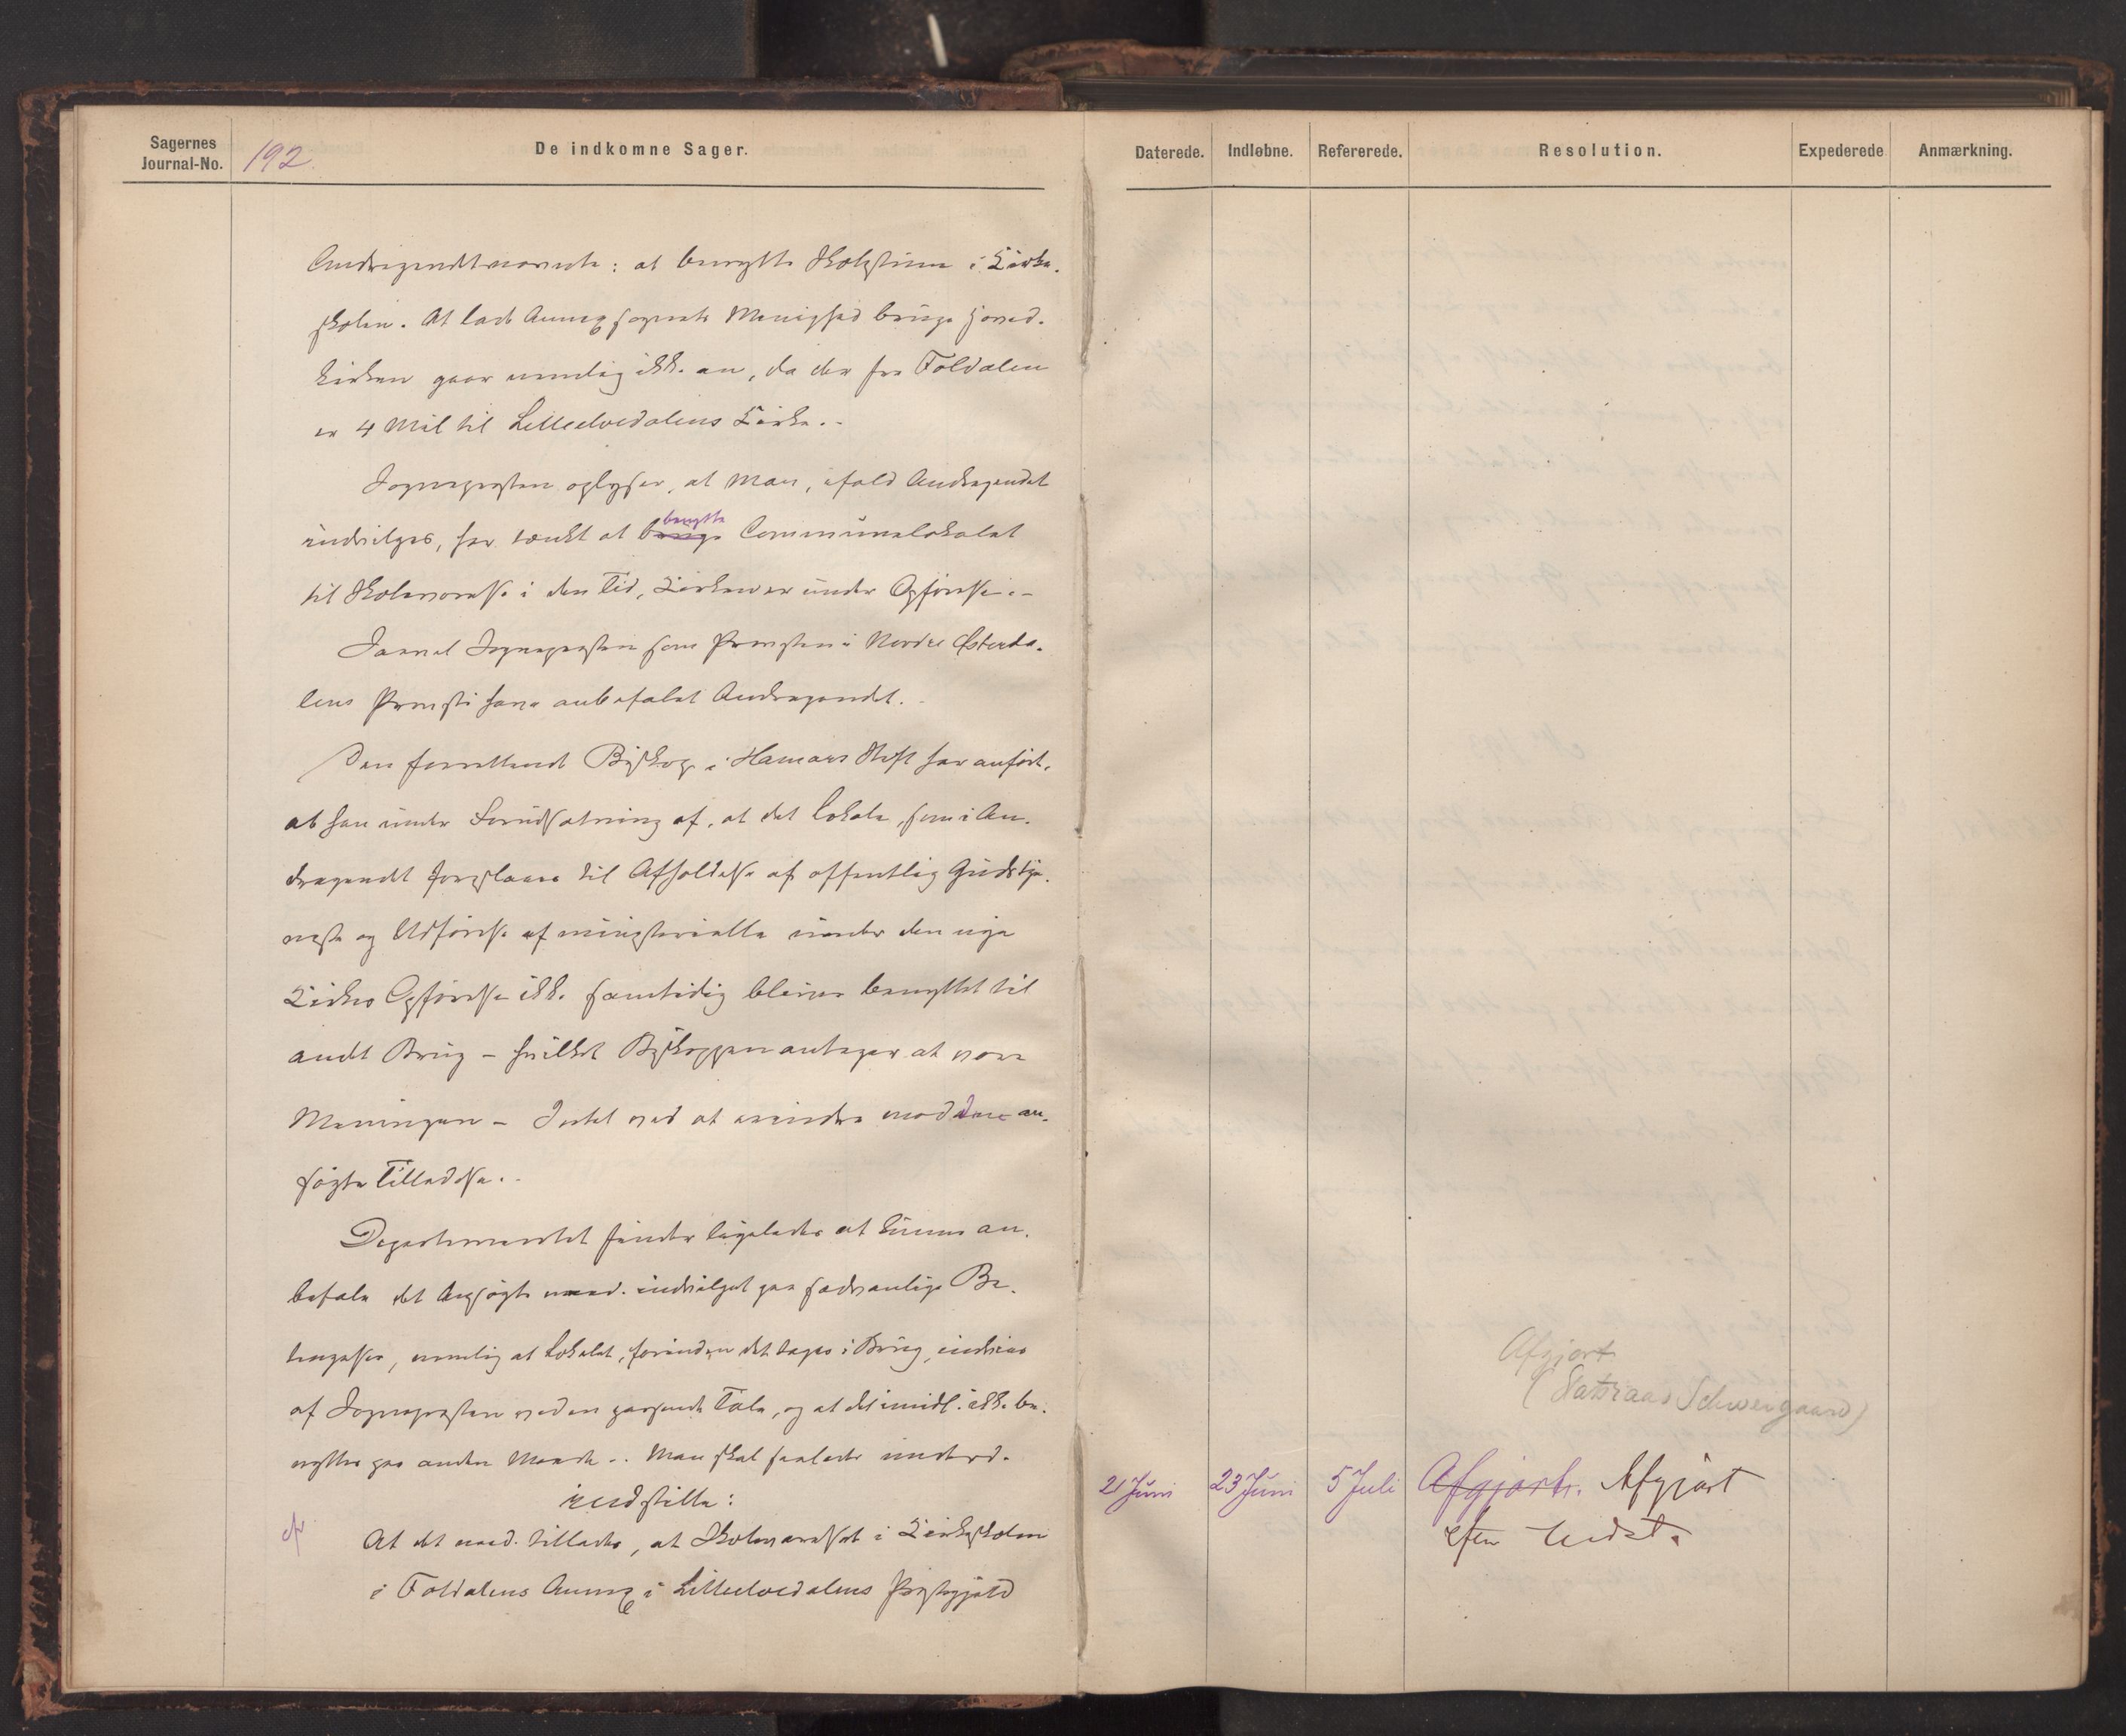 Sagernes
Journal-No.
192.
De indkomne Sager.
Andragendet nævnte: at benytte Skolestuen i Kirke-
skolen. At lade Annexsognets Menighed bruge Hoved-
kirken gaar nemlig ikke an, da der fra Foldalen
er 4 Mil til Lilleelvedalens Kirke.-
Sognepresten oplyser, at man, ifald Andragendet
indvilges, har tænkt at bruge benytte Communelokalet
til Skoleværelse i den Tid, Kirken er under Opførelse.-
Saavel Sognepresten som Provsten i Nordre Østerda-
lens Provsti have anbefalet Andragendet.
Den forrettende Biskop i Hamars Stift har anført,
at han under Forudsætning af, at det Lokale, som i An-
dragendet foreslaaes til Afholdelse af offentlig Gudstje-
neste og Udførelse af ministerielle under den nye
Kirkes Opførelse ikke samtidig bliver benyttet til
andet Brug - hvilket Biskoppen antager at være
Meningen - Intet ved at erindre mod den an-
søgte Tilladelse.-
Departementet finder ligeledes at kunne an-
befale det Ansøgte naad. indvilget paa sædvanlige Be-
tingelser, nemlig at Lokalet, forinden det tages i Brug, indvies
af Sognepresten ved en passende Tale, og at det imidl. ikke be-
nyttes paa anden Maade.- Man skal saaledes underd.
indstille:
At det naad. tillades, at Skoleværelset i Kirkeskolen
i Foldalens Annex i Lilleelvedalens Prestegjæld
Daterede.
Indløbne.
Refererede.
Resolution.
Expederede
Anmærkning.
Afgjort
(Statsraad Schweigaard)
21 Juni
23 Juni
5 Juli
Afgjort. Afgjort
efter Indst.